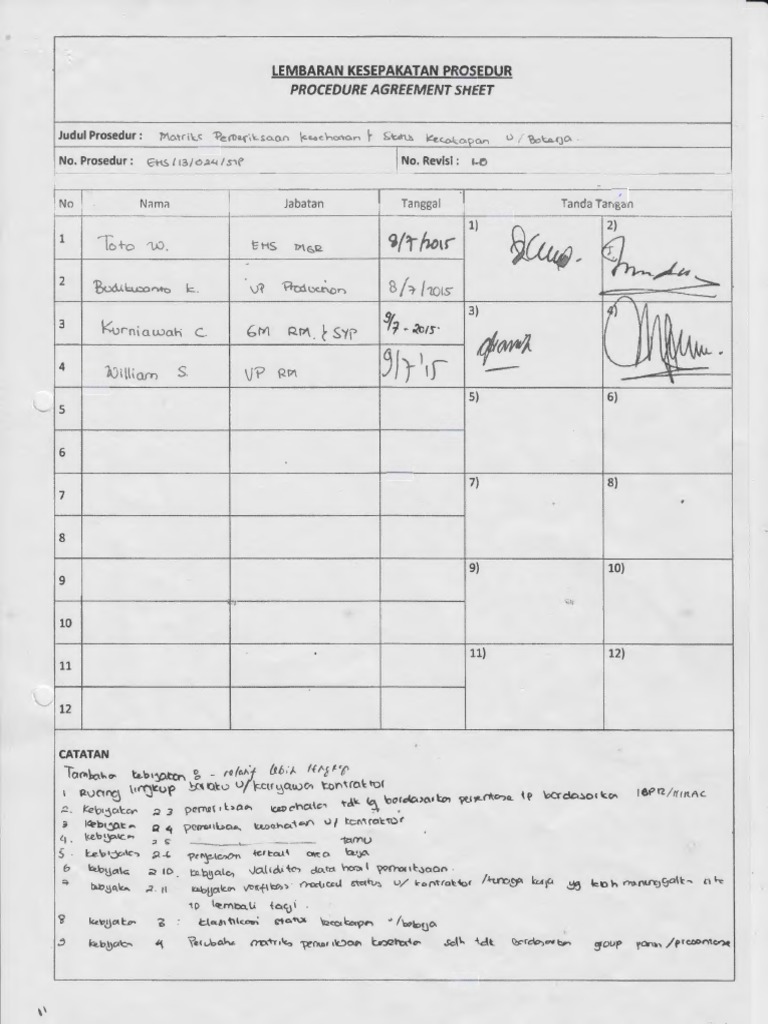 LEMBARAN KESEPAKATAN PROSEDUR
PROCEDURE AGREEMENT SHEET
Judul Prosedur : Matriks Pemeriksaan kesehatan & Status Kecakapan u/Bekerja.
No. Prosedur : EHS/13/024/STP No. Revisi : 1.0
No Nama Jabatan Tanggal Tanda Tangan
1 Toto W. EHS MGR 8/7/2015 1) 2)
2 Budi K. VP Production 8/7/2015
3 Kurniawan C GM RM. & SYP 9/7-2015. 3) 4)
4 William S. VP RM 9/7'15
5 5) 6)
6
7 7) 8)
8
9 9) 10)
10
11 11) 12)
12
CATATAN
Tambahan kebijakan : - relatif lebih lengkap
1 Ruang lingkup berlaku u/karyawan kontraktor
2. Kebijakan 2.3 pemeriksaan kesehatan tdk lg berdasarkan persentase tp berdasarkan IBPR/HIRAC
3 Kebijakan 2.4 pemeriksaan kesehatan u/ kontraktor
4. kebijakan 2.5 tamu
5. kebijakan 2.6 penjelasan terkait area kerja
6 kebijakan 2.10. kebijakan validitas data hasil pemeriksaan.
7 kebijakan 2.11 kebijakan verifikasi medical status u/ kontraktor /tenaga kerja yg telah meninggalkan site
tp kembali lagi.
8 kebijakan 3 : klasifikasi status kecakapan u/bekerja
9 kebijakan 4 Perubahan matriks pemeriksaan kesehatan sdh tdk berdasarkan group /prosentase